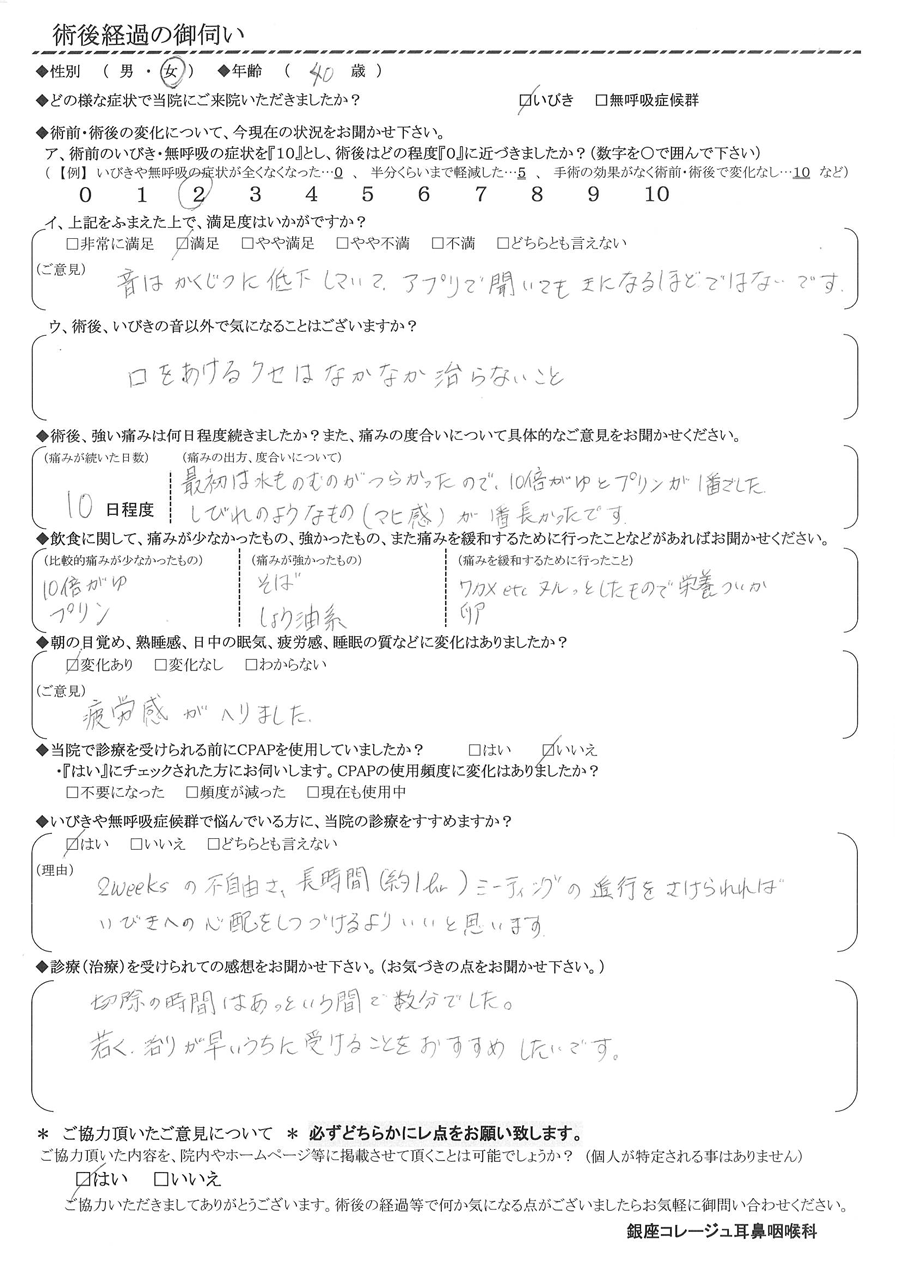 術後経過の御伺い
◆性別 ( 男 ・ 女 ) ◆年齢 ( 40 歳 )
◆どの様な症状で当院にご来院いただきましたか? ☑いびき □無呼吸症候群
◆術前・術後の変化について、今現在の状況をお聞かせ下さい。
ア、術前のいびき・無呼吸の症状を『10』とし、術後はどの程度『0』に近づきましたか?(数字を○で囲んで下さい)
( 【例】 いびきや無呼吸の症状が全くなくなった…0 、 半分くらいまで軽減した…5 、 手術の効果がなく術前・術後で変化なし…10 など)
0 1 2 3 4 5 6 7 8 9 10
イ、上記をふまえた上で、満足度はいかがですか?
□非常に満足 ☑満足 □やや満足 □やや不満 □不満 □どちらとも言えない
(ご意見)
音は かくじつに 低下 していて、アプリで聞いても 気になるほどではないです。
ウ、術後、いびきの音以外で気になることはございますか?
口をあけるクセはなかなか治らないこと
◆術後、強い痛みは何日程度続きましたか?また、痛みの度合いについて具体的なご意見をお聞かせください。
(痛みが続いた日数) (痛みの出方、度合いについて)
10 日程度
最初は水ものむのがつらかったので、10倍がゆとプリンが1番でした。
しびれのようなもの(マヒ感)が1番長かったです。
◆飲食に関して、痛みが少なかったもの、強かったもの、また痛みを緩和するために行ったことなどがあればお聞かせください。
(比較的痛みが少なかったもの) (痛みが強かったもの) (痛みを緩和するために行ったこと)
10倍がゆ そば ワカメetc ヌルっとしたもので栄養
プリン しょう油系 卵
◆朝の目覚め、熟睡感、日中の眠気、疲労感、睡眠の質などに変化はありましたか?
☑変化あり □変化なし □わからない
(ご意見)
疲労感がへりました。
◆当院で診療を受けられる前にCPAPを使用していましたか? □はい ☑いいえ
・『はい』にチェックされた方にお伺いします。CPAPの使用頻度に変化はありましたか?
□不要になった □頻度が減った □現在も使用中
◆いびきや無呼吸症候群で悩んでいる方に、当院の診療をすすめますか?
☑はい □いいえ □どちらとも言えない
(理由)
2weeksの不自由さ、長時間(約1hr)ミーティングの進行をさけられれば
いびきへの心配をしつづけるよりいいと思います。
◆診療(治療)を受けられての感想をお聞かせ下さい。(お気づきの点をお聞かせ下さい。)
切除の時間はあっという間で数分でした。
若く、治りが早いうちに受けることをおすすめしたいです。
＊ ご協力頂いたご意見について ＊ 必ずどちらかにレ点をお願い致します。
ご協力頂いた内容を、院内やホームページ等に掲載させて頂くことは可能でしょうか? (個人が特定される事はありません)
☑はい □いいえ
ご協力いただきましてありがとうございます。術後の経過等で何か気になる点がございましたらお気軽に御問い合わせください。
銀座コレージュ耳鼻咽喉科